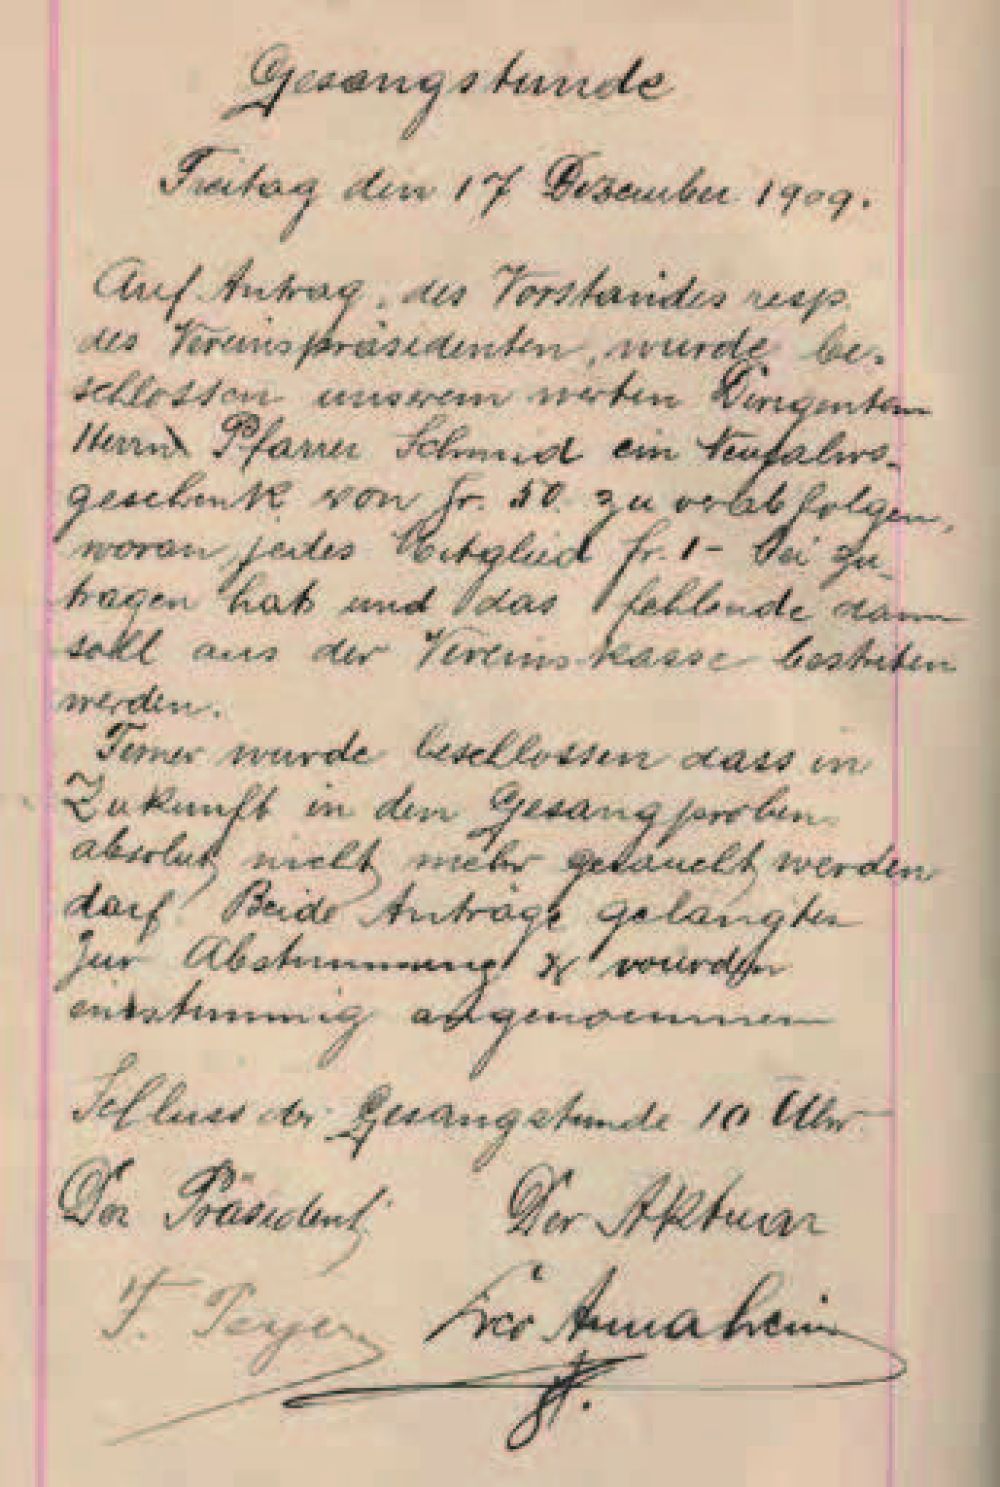 Gesangstunde
Freitag den 17 Dezember 1909.
Auf Antrag, des Vorstandes resp.
des Vereinspräsidenten, wurde be-
schlossen unserem werten Dirigenten
Herrn Pfarrer Schmid ein Neujahrs-
geschenk von Fr. 50. zu verabfolgen,
woran jedes Mitglied fr. 1- bei zu-
tragen hat und das fehlende dann
soll aus der Vereinskasse bestriten
werden.
Ferner wurde beschlossen dass in
Zukunft in den Gesangproben
absolut nicht mehr geraucht werden
darf. Beide Anträge gelangten
zur Abstimmung & wurden
einstimmig angenommen
Schluss der Gesangstunde 10 Uhr
Der Präsident Der Aktuar
F. Annaheim